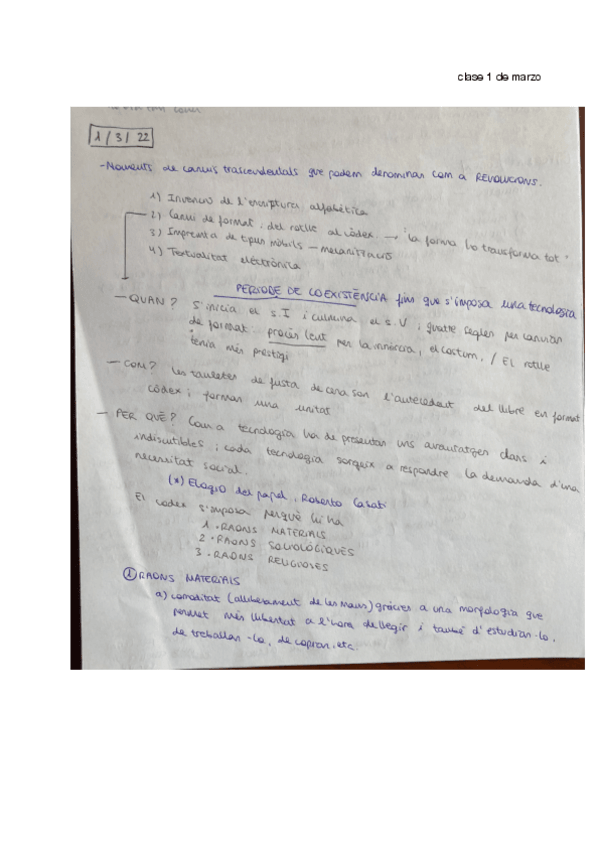 clase 1 de marzo
1 / 3 / 22
- Moments de canvis trascendentals que podem denominar com a REVOLUCIONS.
1) Invenció de l'escriptura alfabètica
2) Canvi de format, del rotlle al còdex → "la forma ho transforma tot"
3) Impremta de tipus mòbils - mecanització
4) Textualitat electrònica
PERIODE DE COEXISTÈNCIA fins que s'imposa una tecnologia
- QUAN? S'inicia el s.I i culmina el s.V ; quatre segles per canviar
de format: procés lent per la innèrcia, el costum, / El rotlle
tenia més prestigi
- COM? Les tauletes de fusta de cera son l'antecedent del llibre en format
còdex i formen una unitat
- PER QUÈ? Com a tecnologia ha de presentar uns avantatges clars i
indiscutibles i cada tecnologia sorgeix a respondre la demanda d'una
necessitat social.
(*) Elogio del papel, Roberto Casati
El codex s'imposa perquè hi ha
1. RAONS MATERIALS
2. RAONS SOCIOLÒGIQUES
3. RAONS RELIGIOSES
1 RAONS MATERIALS
a) comoditat (alliberament de les mans) gràcies a una morfologia que
permet més llibertat a l'hora de llegir i també d'estudiar-lo,
de treballar-lo, de copiar, etc.